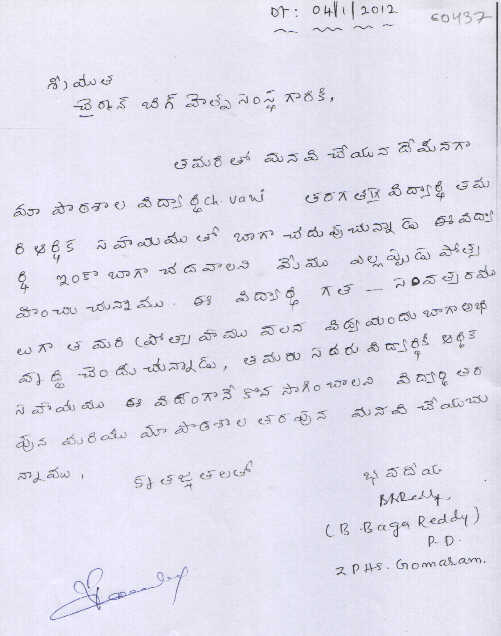 Dt: 04/1/2012
60437
శ్రీయుత
చైర్మన్ బిగ్ హెల్ప్ సంస్థ గారికి,
తమరితో మనవి చేయున దేమనగా
మా పాఠశాల విద్యార్థి ch. vani తరగతి విద్యార్థి తమ
రి ఆర్థిక సహాయము తో బాగా చదువుచున్నాడు ఈ విద్యా
ర్థి ఇంకా బాగా చదవాలని మేము ఎల్లప్పుడు ప్రోత్స
హించు చున్నాము. ఈ విద్యార్థి గత — సంవత్సరము
లుగా తమరి ప్రోత్సాహము వలన విద్య యందు బాగా అభి
వృద్ధి చెందుచున్నాడు, తమరు సదరు విద్యార్థికి ఆర్థిక
సహాయము ఈ విదంగానే కొన సాగించాలని విద్యార్థి తర
పున మరియు మా పాఠశాల తరపున మనవి చేయుచు
న్నాము.
కృతజ్ఞతలతో
భవదీయ
BNReddy,
(B. Baga Reddy)
P.D.
ZPHS. Gomaram.